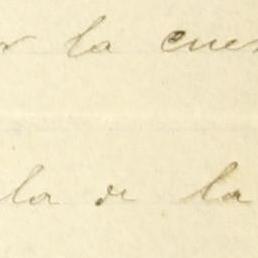 la cue
la de la